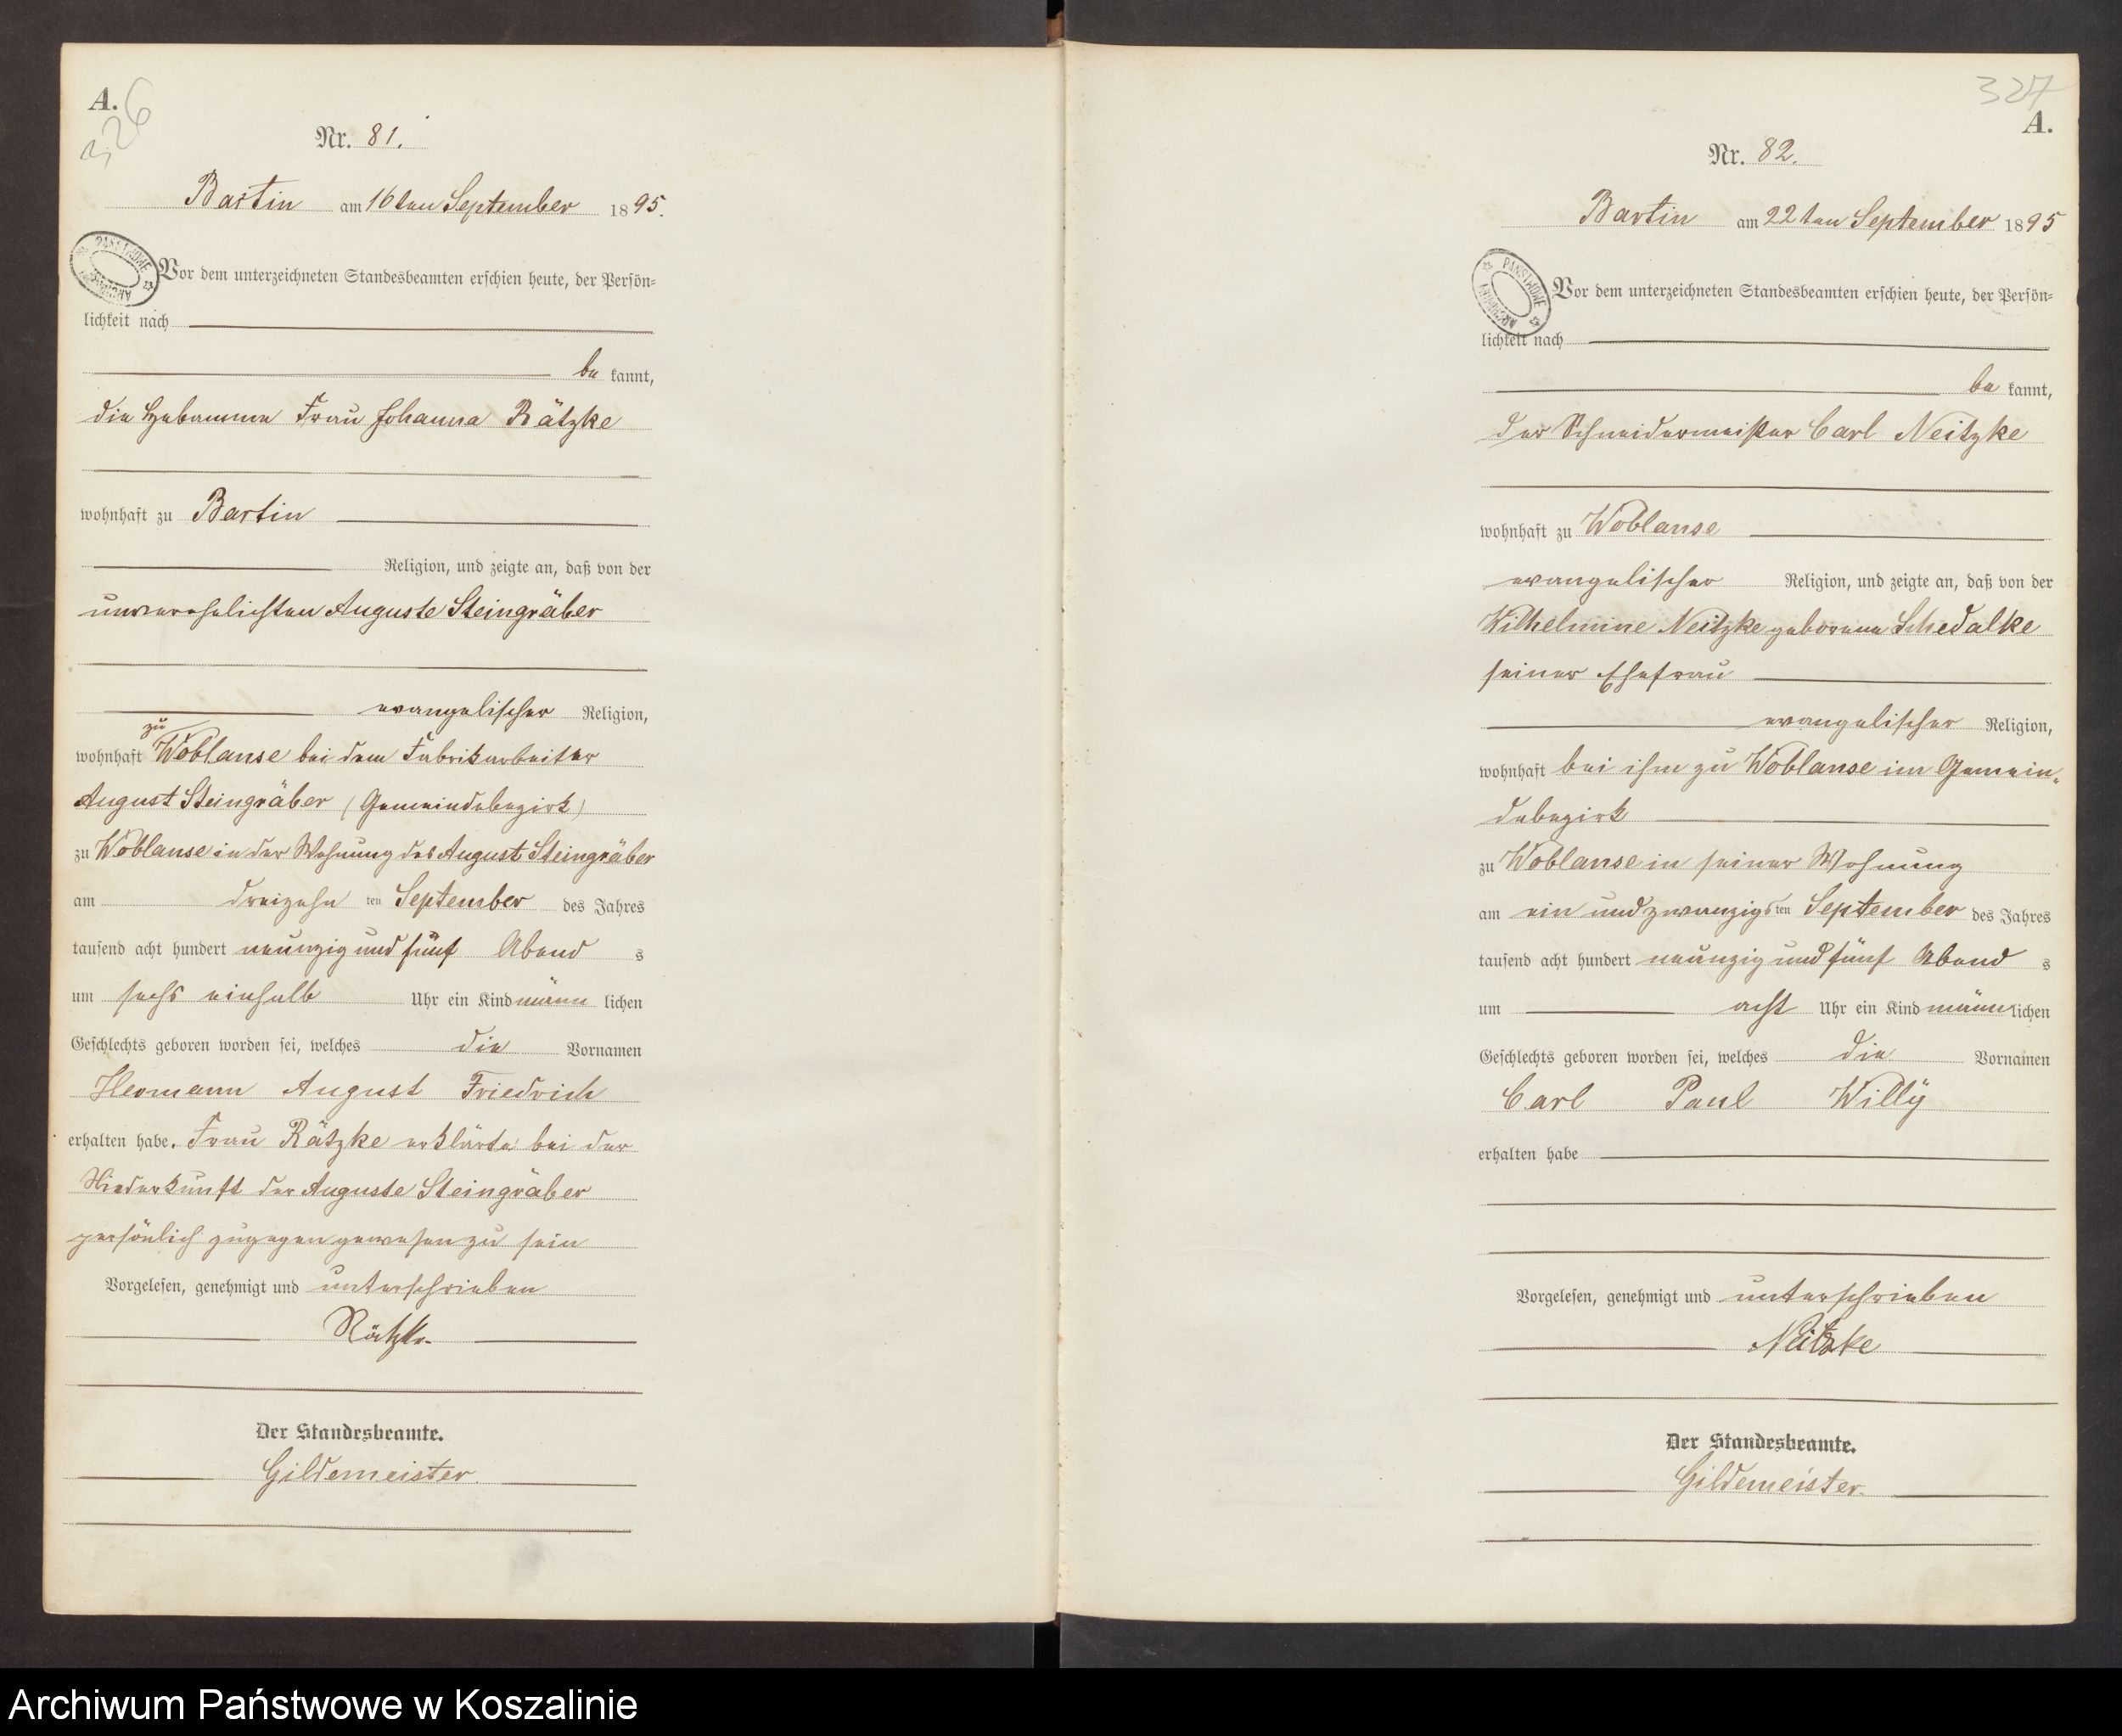 A.
326
Nr. 81.
Bartin am 16ten September 1895.
Vor dem unterzeichneten Standesbeamten erschien heute, der Persön=
lichkeit nach
be kannt,
die Hebamme Frau Johanna Rätzke
wohnhaft zu Bartin
Religion, und zeigte an, daß von der
unverehelichten Auguste Steingräber
evangelischer Religion,
zu
wohnhaft Woblanse bei dem Fabrikarbeiter
August Steingräber (Gemeindebezirk)
zu Woblanse in der Wohnung des August Steingräber
am dreizehn ten September des Jahres
tausend acht hundert neunzig und fünf Abend s
um sechs einhalb Uhr ein Kind männ lichen
Geschlechts geboren worden sei, welches die Vornamen
Hermann August Friedrich
erhalten habe. Frau Rätzke erklärte bei der
Niederkunft der Auguste Steingräber
persönlich zugegen gewesen zu sein
Vorgelesen, genehmigt und unterschrieben
Rätzke
Der Standesbeamte.
Gildemeister.
327
A.
Nr. 82.
Bartin am 22ten September 1895
PANSTWOWE ARCHIWUM
Vor dem unterzeichneten Standesbeamten erschien heute, der Persön=
lichkeit nach
be kannt,
der Schneidermeister Carl Neitzke
wohnhaft zu Woblanse
evangelischer Religion, und zeigte an, daß von der
Wilhelmine Neitzke geborene Schedalke
seiner Ehefrau
evangelischer Religion,
wohnhaft bei ihm zu Woblanse im Gemein=
debezirk
zu Woblanse in seiner Wohnung
am ein und zwanzigsten September des Jahres
tausend acht hundert neunzig und fünf Abend s
um acht Uhr ein Kind männ lichen
Geschlechts geboren worden sei, welches die Vornamen
Carl Paul Willÿ
erhalten habe
Vorgelesen, genehmigt und unterschrieben
Neitzke
Der Standesbeamte.
Gildemeister.
Archiwum Państwowe w Koszalinie